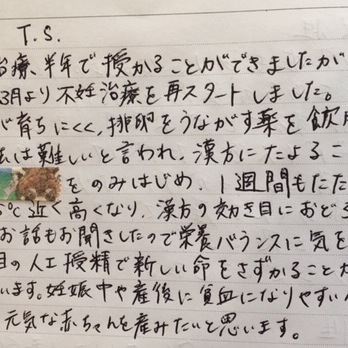 T.S.
治療、半年で授かることができましたが
3月より不妊治療を再スタートしました。
が育ちにくく、排卵をうながす薬を飲
は難しいと言われ、漢方にたよるこ
をのみはじめ、1週間もたた
℃近く高くなり、漢方の効き目におどろ
お話もお聞きしたので栄養バランスに気を
目の人工授精で新しい命をさずかることが
います。妊娠中や産後に貧血になりやすい
元気な赤ちゃんを産みたいと思います。